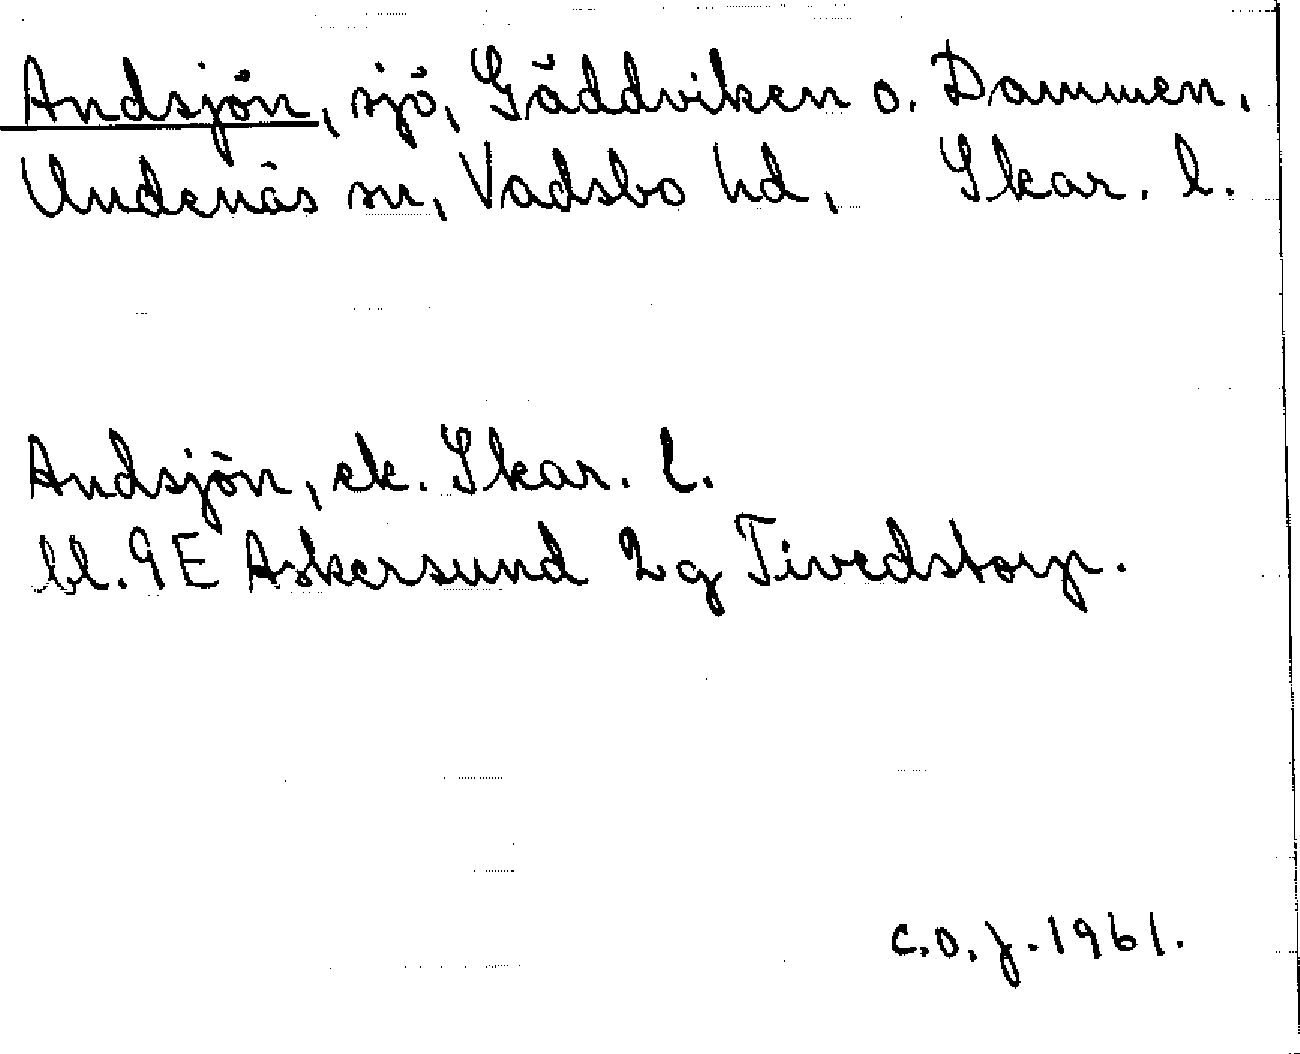 Andsjön, sjö, Gäddviken o. Dammen,
Undenäs sn, Vadsbo hd, Skar. l.
Andsjön, ek. Skar. l.
bl. 9E Askersund 2g Tivedstorp.
C.O.J. 1961.